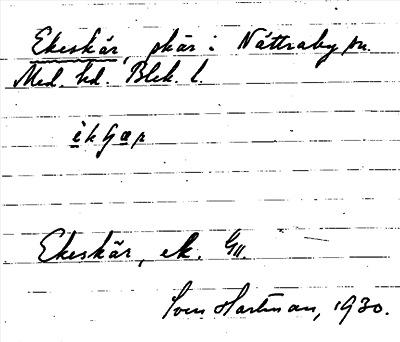 Ekeskär, skär i Nättraby sn.
Med. hd. Blek. l.
Ekeskär, ek. G11.
Sven Hartman, 1930.